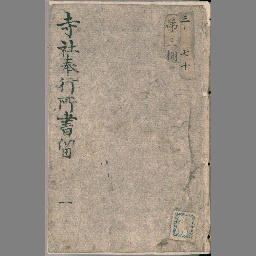 三ノ七十
第二棚
寺社奉行所書留
一